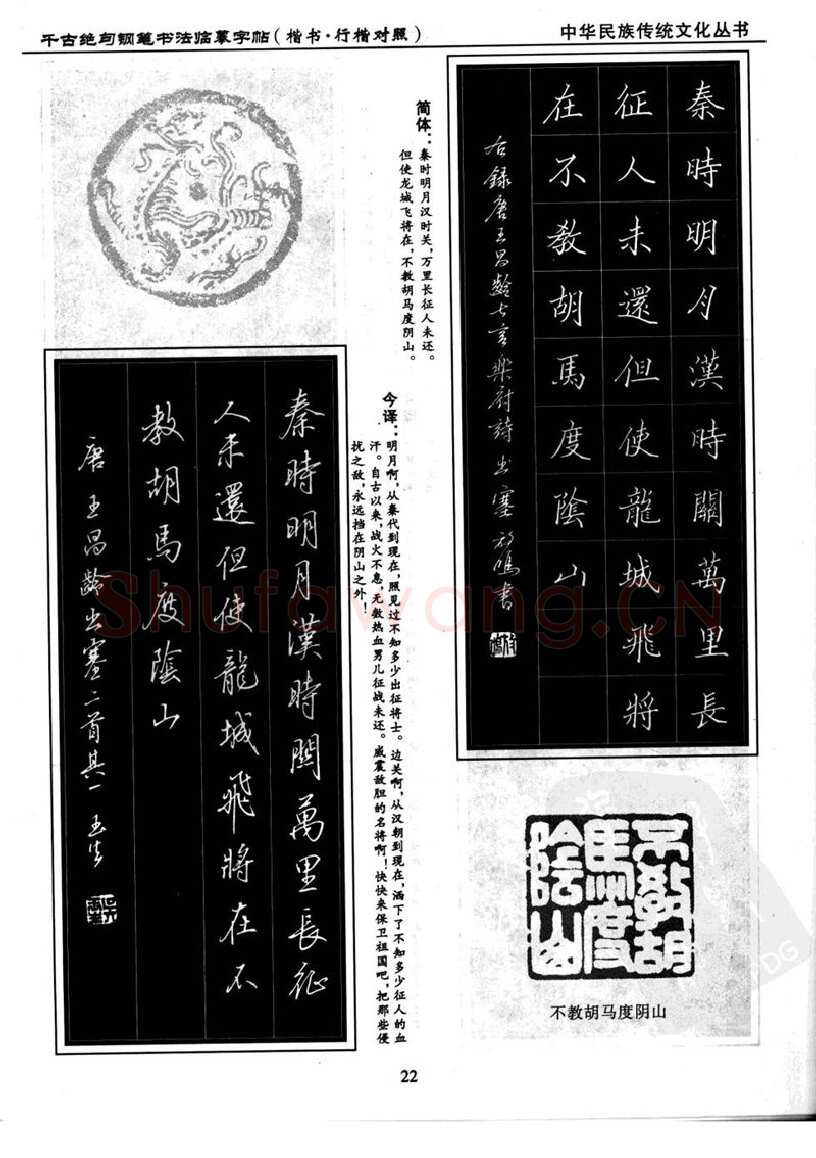 千古绝句钢笔书法临摹字帖(楷书·行楷对照)
中华民族传统文化丛书
秦時明月漢時關萬里長
征人未還但使龍城飛將
在不教胡馬度陰山
右錄唐王昌齡七言樂府詩出塞 鳴書
简体：秦时明月汉时关，万里长征人未还。
但使龙城飞将在，不教胡马度阴山。
今译：明月啊，从秦代到现在，照见过不知多少出征将士。边关啊，从汉朝到现在，洒下了不知多少征人的血
汗。自古以来，战火不息，无数热血男儿征战未还。威震敌胆的名将啊！快快来保卫祖国吧，把那些侵
扰之敌，永远挡在阴山之外！
秦時明月漢時關萬里長征
人未還但使龍城飛將在不
教胡馬度陰山
唐王昌齡出塞二首其一
不教胡
馬度
陰山
不教胡马度阴山
22
Shufawang.CN